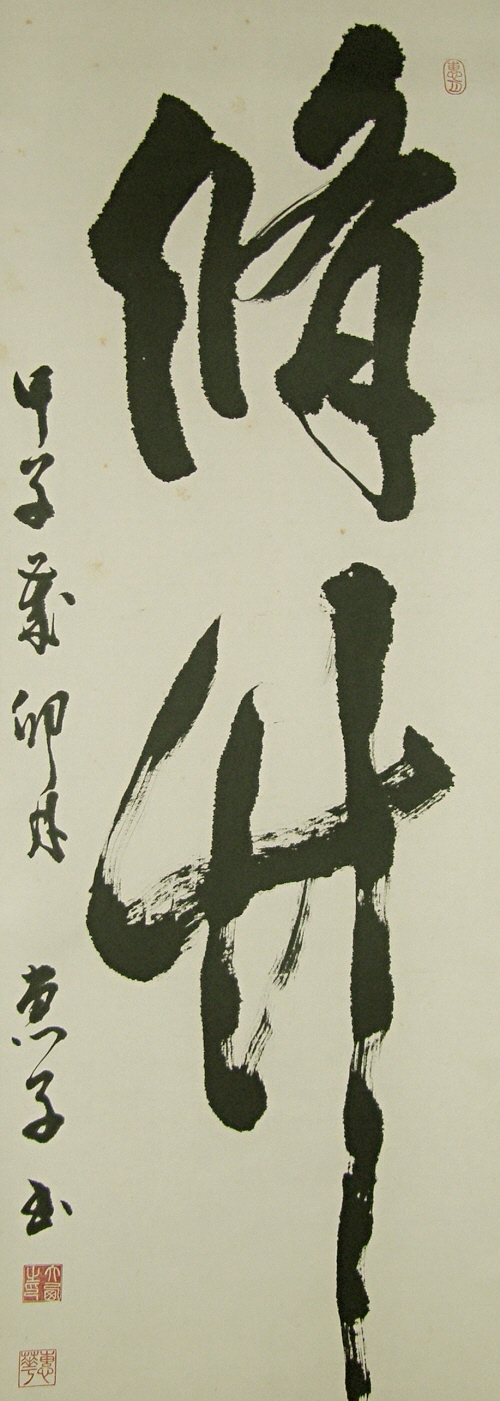 脩竹
甲子歲卯月 恵子書